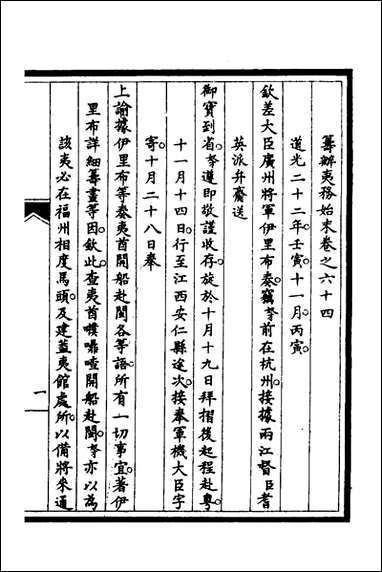 籌辦夷務始末卷之六十四
道光二十二年壬寅十一月丙寅
欽差大臣廣州將軍伊里布奏竊奴才前在杭州接據兩江督臣耆
英派弁齎送
御寶到省奴才遵即敬謹收存旋於十月十九日拜摺後起程赴粵
十一月十四日行至江西安仁縣途次接奉軍機大臣字
寄十月二十八日奉
上諭據伊里布等奏夷酋開船赴閩各等語所有一切事宜著伊
里布詳細籌畫等因欽此查夷酋㗲嚙喳開船赴閩奴才亦以為
該夷必在福州相度馬頭及建蓋夷館處所以備將來通
一